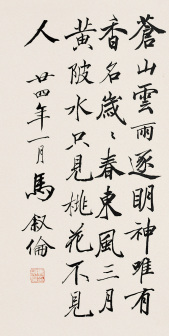 蒼山雲雨逐朙神唯有
香名歲〻春東風三月
黄陂水只見桃花不見
人
廿四年一月馬叙倫